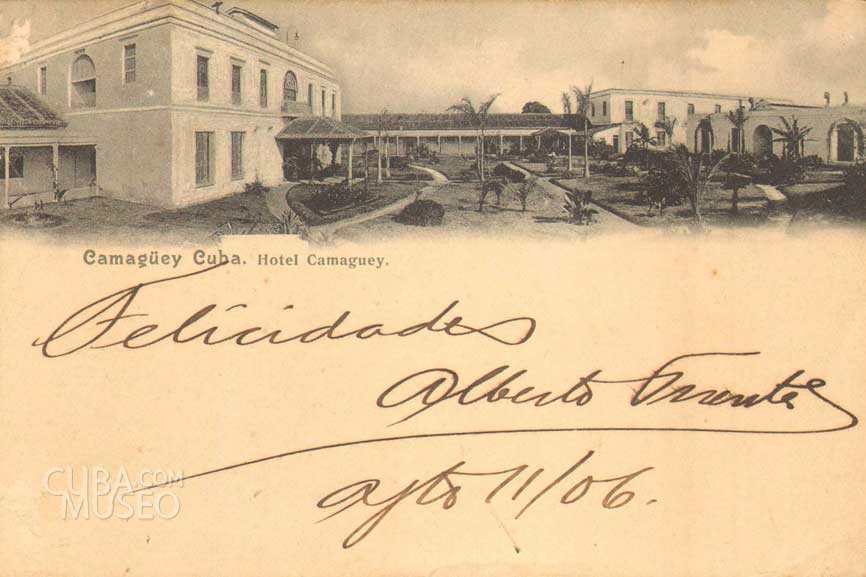 Camagüey Cuba. Hotel Camaguey.
Felicidades
Alberto
agto 11/06.
CUBA.COM
MUSEO